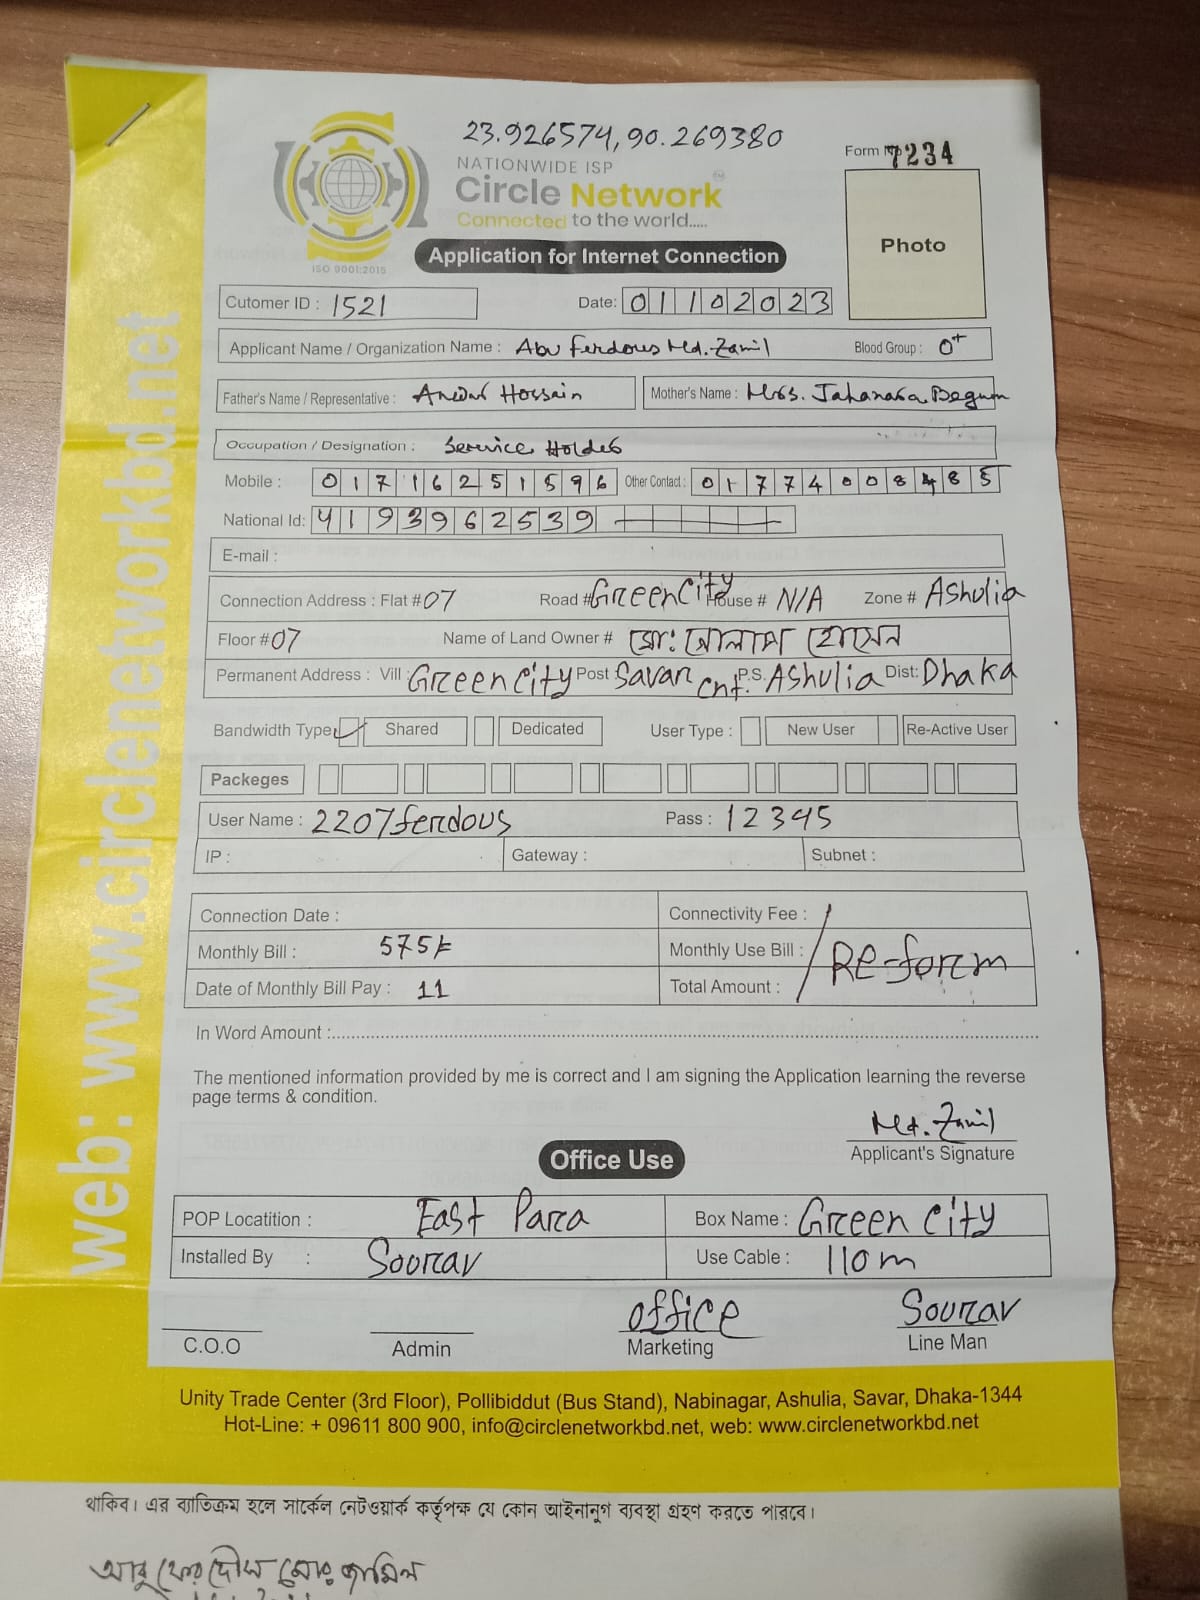 23.926574,90.269380
NATIONWIDE ISP
Form No 7234
Circle Network
Connected to the world.....
ISO 9001:2015
Application for Internet Connection
Photo
Cutomer ID : 1521 Date: 01102023
Applicant Name / Organization Name : Abu Ferdous Md. Zamil Blood Group : O+
Father's Name / Representative : Anwar Hossain Mother's Name : Mrs. Jahanara Begum
Occupation / Designation : Service Holder
Mobile : 01716251596 Other Contact : 01774008485
National Id: 4193962539
E-mail :
Connection Address : Flat # 07 Road # Green City House # N/A Zone # Ashulia
Floor # 07 Name of Land Owner # মো: গোলাপ হোসেন
Permanent Address : Vill : Green City Post Savar Cnt. P.S. Ashulia Dist: Dhaka
Bandwidth Type Shared Dedicated User Type : New User Re-Active User
Packeges
User Name : 2207ferdous Pass : 12345
IP : Gateway : Subnet :
Connection Date : Connectivity Fee :
Monthly Bill : 575/= Monthly Use Bill : Re-form
Date of Monthly Bill Pay : 11 Total Amount :
In Word Amount :
The mentioned information provided by me is correct and I am signing the Application learning the reverse
page terms & condition.
Md. Zamil
Applicant's Signature
Office Use
POP Locatition : East Para Box Name : Green City
Installed By : Sourav Use Cable : 110m
office Sourav
C.O.O Admin Marketing Line Man
Unity Trade Center (3rd Floor), Pollibiddut (Bus Stand), Nabinagar, Ashulia, Savar, Dhaka-1344
Hot-Line: + 09611 800 900, info@circlenetworkbd.net, web: www.circlenetworkbd.net
web: www.circlenetworkbd.net
থাকিব। এর ব্যাতিক্রম হলে সার্কেল নেটওয়ার্ক কর্তৃপক্ষ যে কোন আইনানুগ ব্যবস্থা গ্রহণ করতে পারবে।
আবু ফেরদৌস মোঃ জামিল